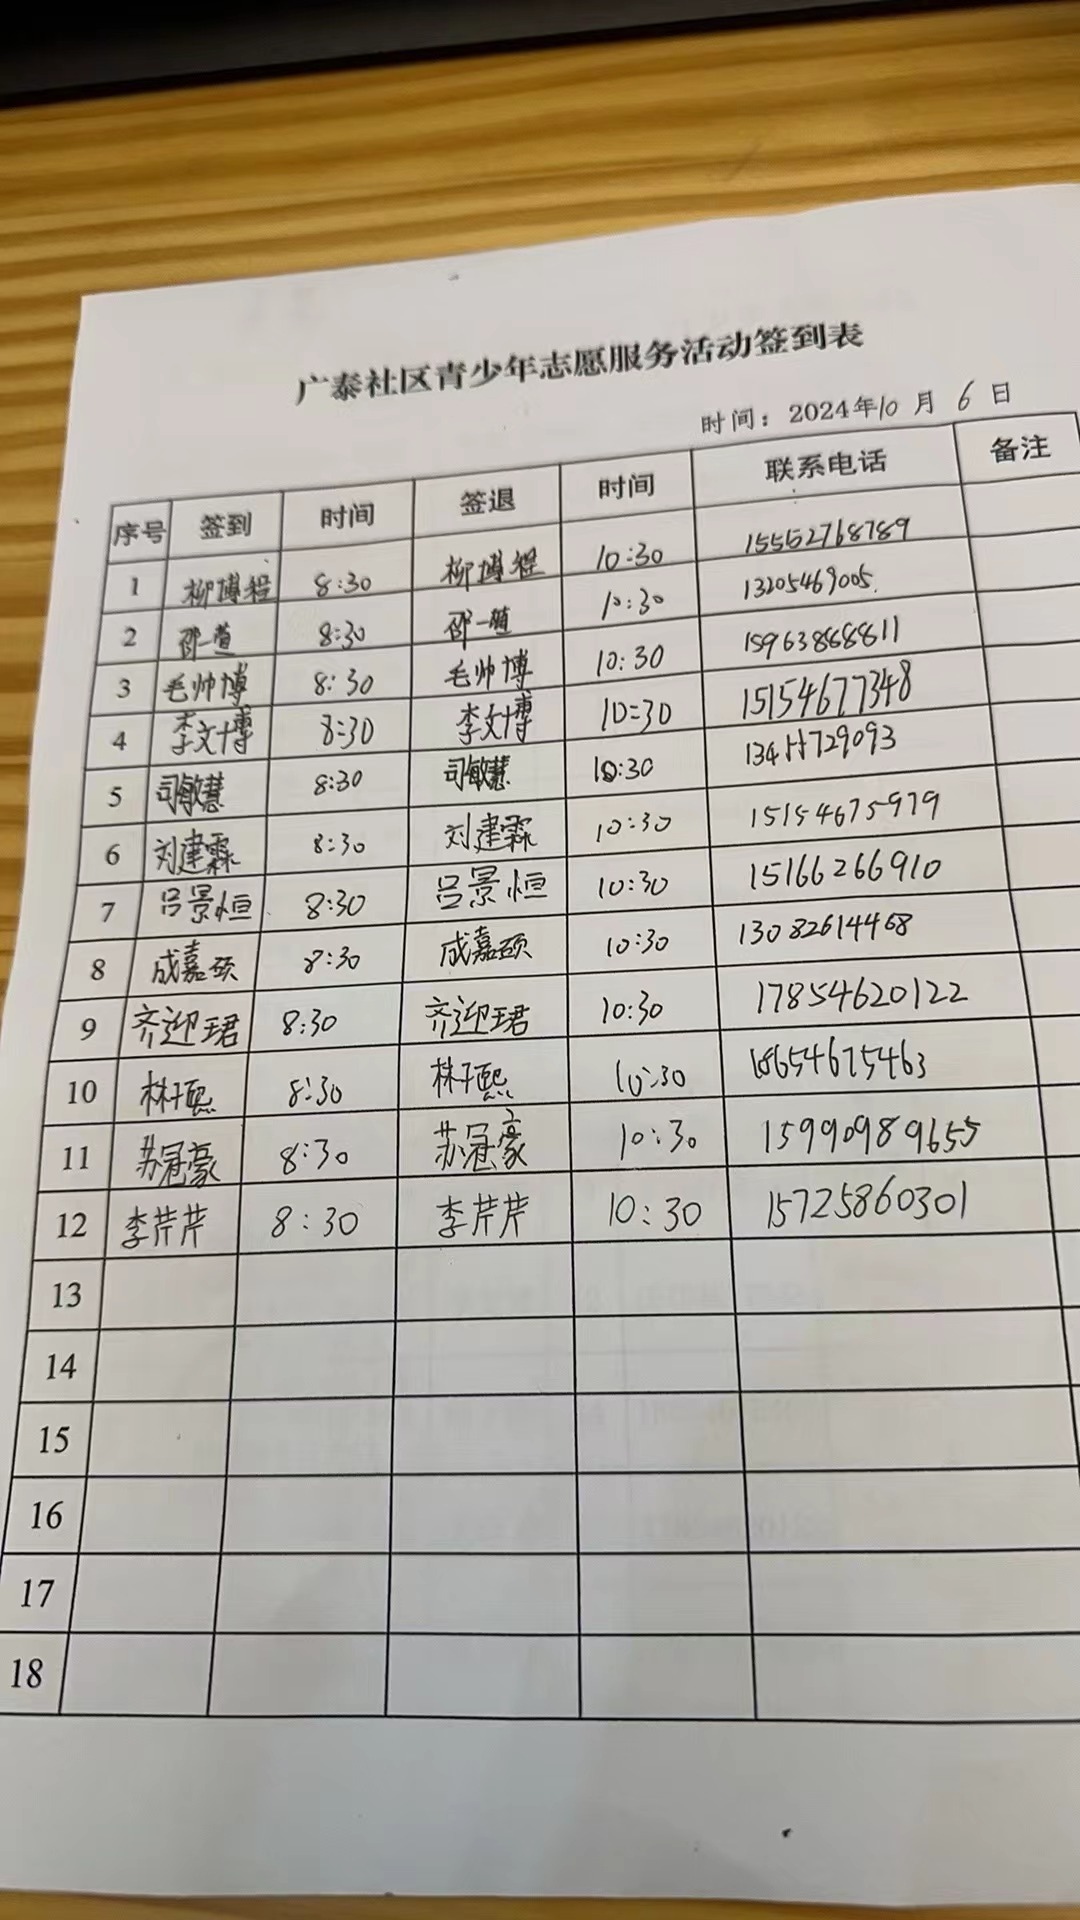 广泰社区青少年志愿服务活动签到表
时间：2024年10月6日
序号 签到 时间 签退 时间 联系电话 备注
1 柳博程 8:30 柳博程 10:30 15552768789
2 邵一萱 8:30 邵一萱 10:30 13205469005.
3 毛帅博 8:30 毛帅博 10:30 15963868811
4 李文博 8:30 李文博 10:30 15154677348
5 司敏慧 8:30 司敏慧 10:30
6 刘建霖 8:30 刘建霖 10:30 15154675979
7 吕景恒 8:30 吕景恒 10:30 15166266910
8 成嘉硕 8:30 成嘉硕 10:30 13082614468
9 齐迎珺 8:30 齐迎珺 10:30 17854620122
10 林子熙 8:30 林子熙 10:30 18654675463
11 苏冠豪 8:30 苏冠豪 10:30 15990989655
12 李芹芹 8:30 李芹芹 10:30 15725860301
13
14
15
16
17
18